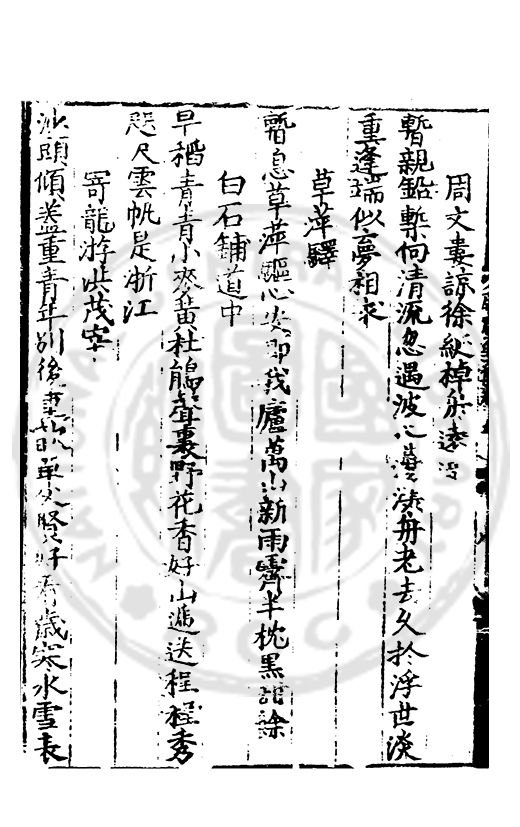 周文婁諒徐紘棹舟遠
暫親鉛槧向清流忽遇波心漾舟老去久於浮世淡
重逢端似夢相求
草萍驛
暫息草萍驅心安即我廬萬山新雨霽半枕黑甜餘
白石鋪道中
早稻青青小麥黃杜鵑聲裏野花香好山遞送程程秀
咫尺雲帆是浙江
寄龍游茂宰
沙頭傾蓋重青年別後單父賢好看歲寒水雪表